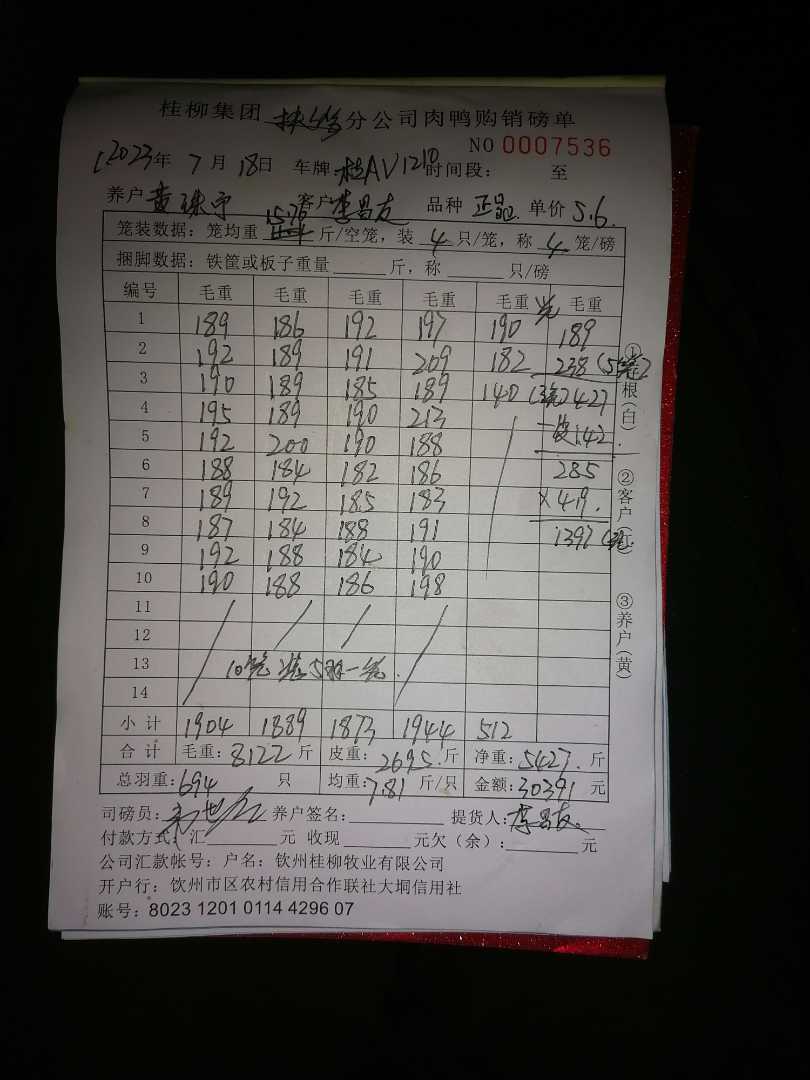 桂柳集团 分公司肉鸭购销磅单
NO 0007536
2023年 7月 18日 车牌:桂AV1210 时间段: 至
养户 黄 客户 李昌友 品种 正品 单价 5.6.
笼装数据:笼均重 15.76 斤/空笼,装 4 只/笼,称 4 笼/磅
捆脚数据:铁筐或板子重量 斤,称 只/磅
编号 毛重 毛重 毛重 毛重 毛重 毛重
1 189 186 192 197 190 189
2 192 189 191 209 182 238 (5笼)
3 190 189 185 189 140 (3笼) 427
4 195 189 190 213 142.
5 192 200 190 188 285
6 188 184 182 186
7 189 192 185 183 × 419.
8 187 184 188 191 1397
9 192 188 184 190
10 190 188 186 198
11
12
13 10笼 装5羽一笼.
14
小计 1904 1889 1873 1944 512
合计 毛重:8122 斤 皮重:2695.斤 净重:5427.斤
总羽重:694 只 均重:7.81 斤/只 金额:30391 元
司磅员: 养户签名: 提货人:李昌友
付款方式:汇 元 收现 元欠(余): 元
公司汇款帐号:户名:钦州桂柳牧业有限公司
开户行:钦州市区农村信用合作联社大垌信用社
账号:8023 1201 0114 4296 07
①存根(白)
②客户(红)
③养户(黄)